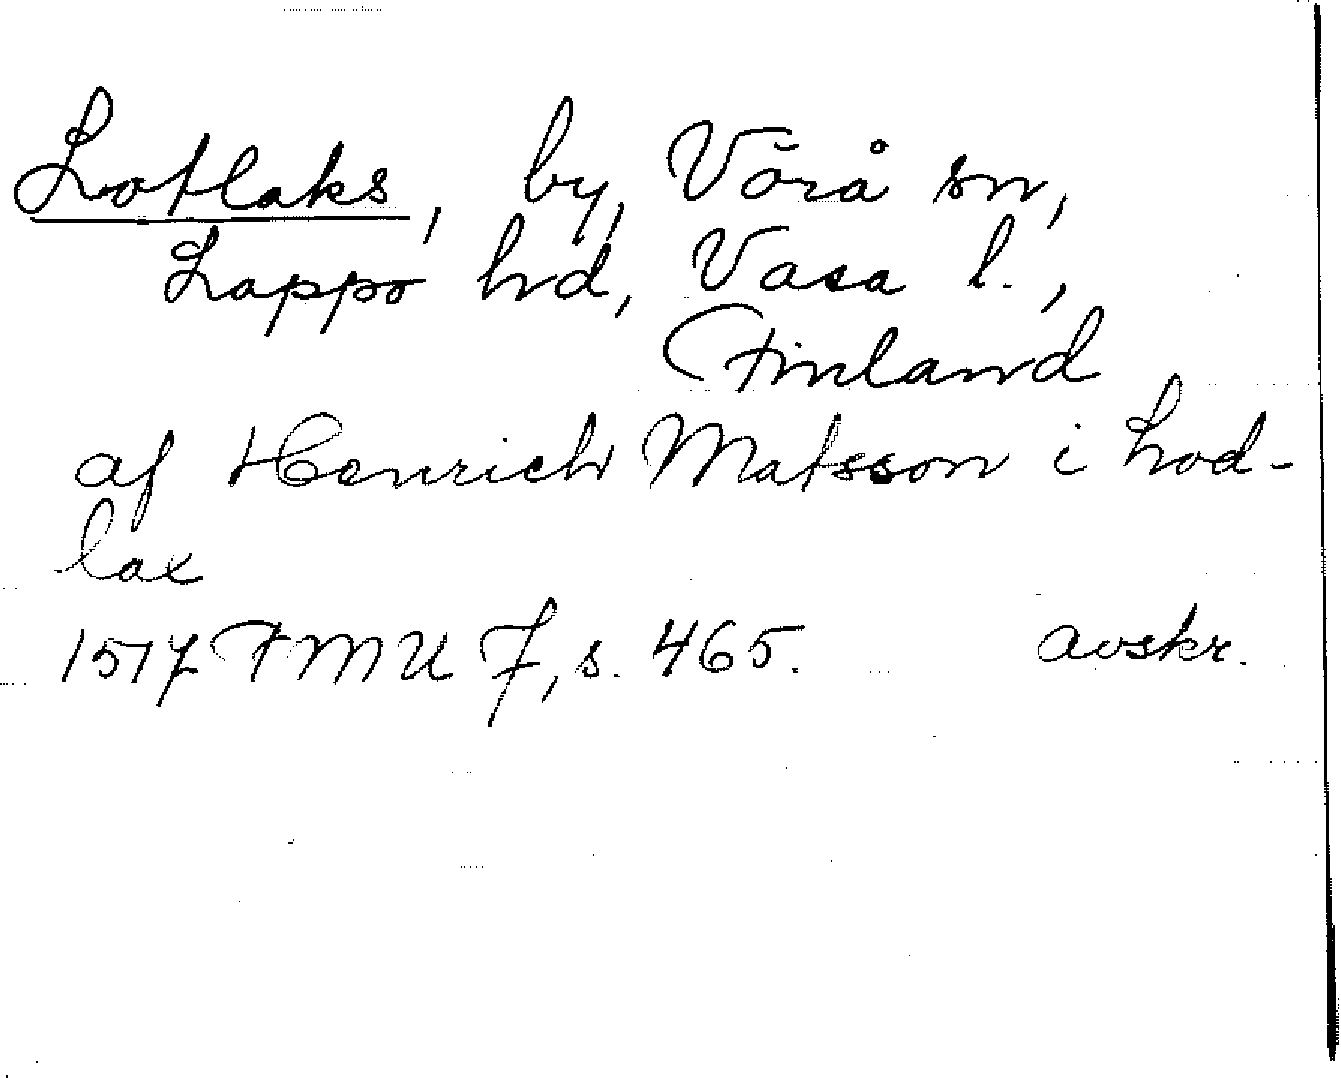 Lotlaks, by, Vörå sn,
Lappo hd, Vasa l.,
Finland
af Henrich Matsson i Lod-
lax
1517 FMU 7, s. 465. avskr.